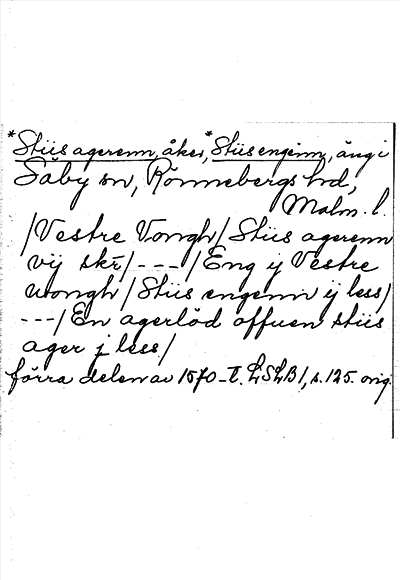 *Stiis agerenn, åker, *Stiis enginn, äng i
Säby sn, Rönnebergs hd,
Malm. l.
/Vestre Vongh/ Stiis agerenn
vij skr/ --- /Eng y Vestre
wongh/ Stiis engenn ij less/
---/ En agerlöd offuen stiis
ager j less/
förra delen av 1570-t. LSLB 1, s. 125. orig.